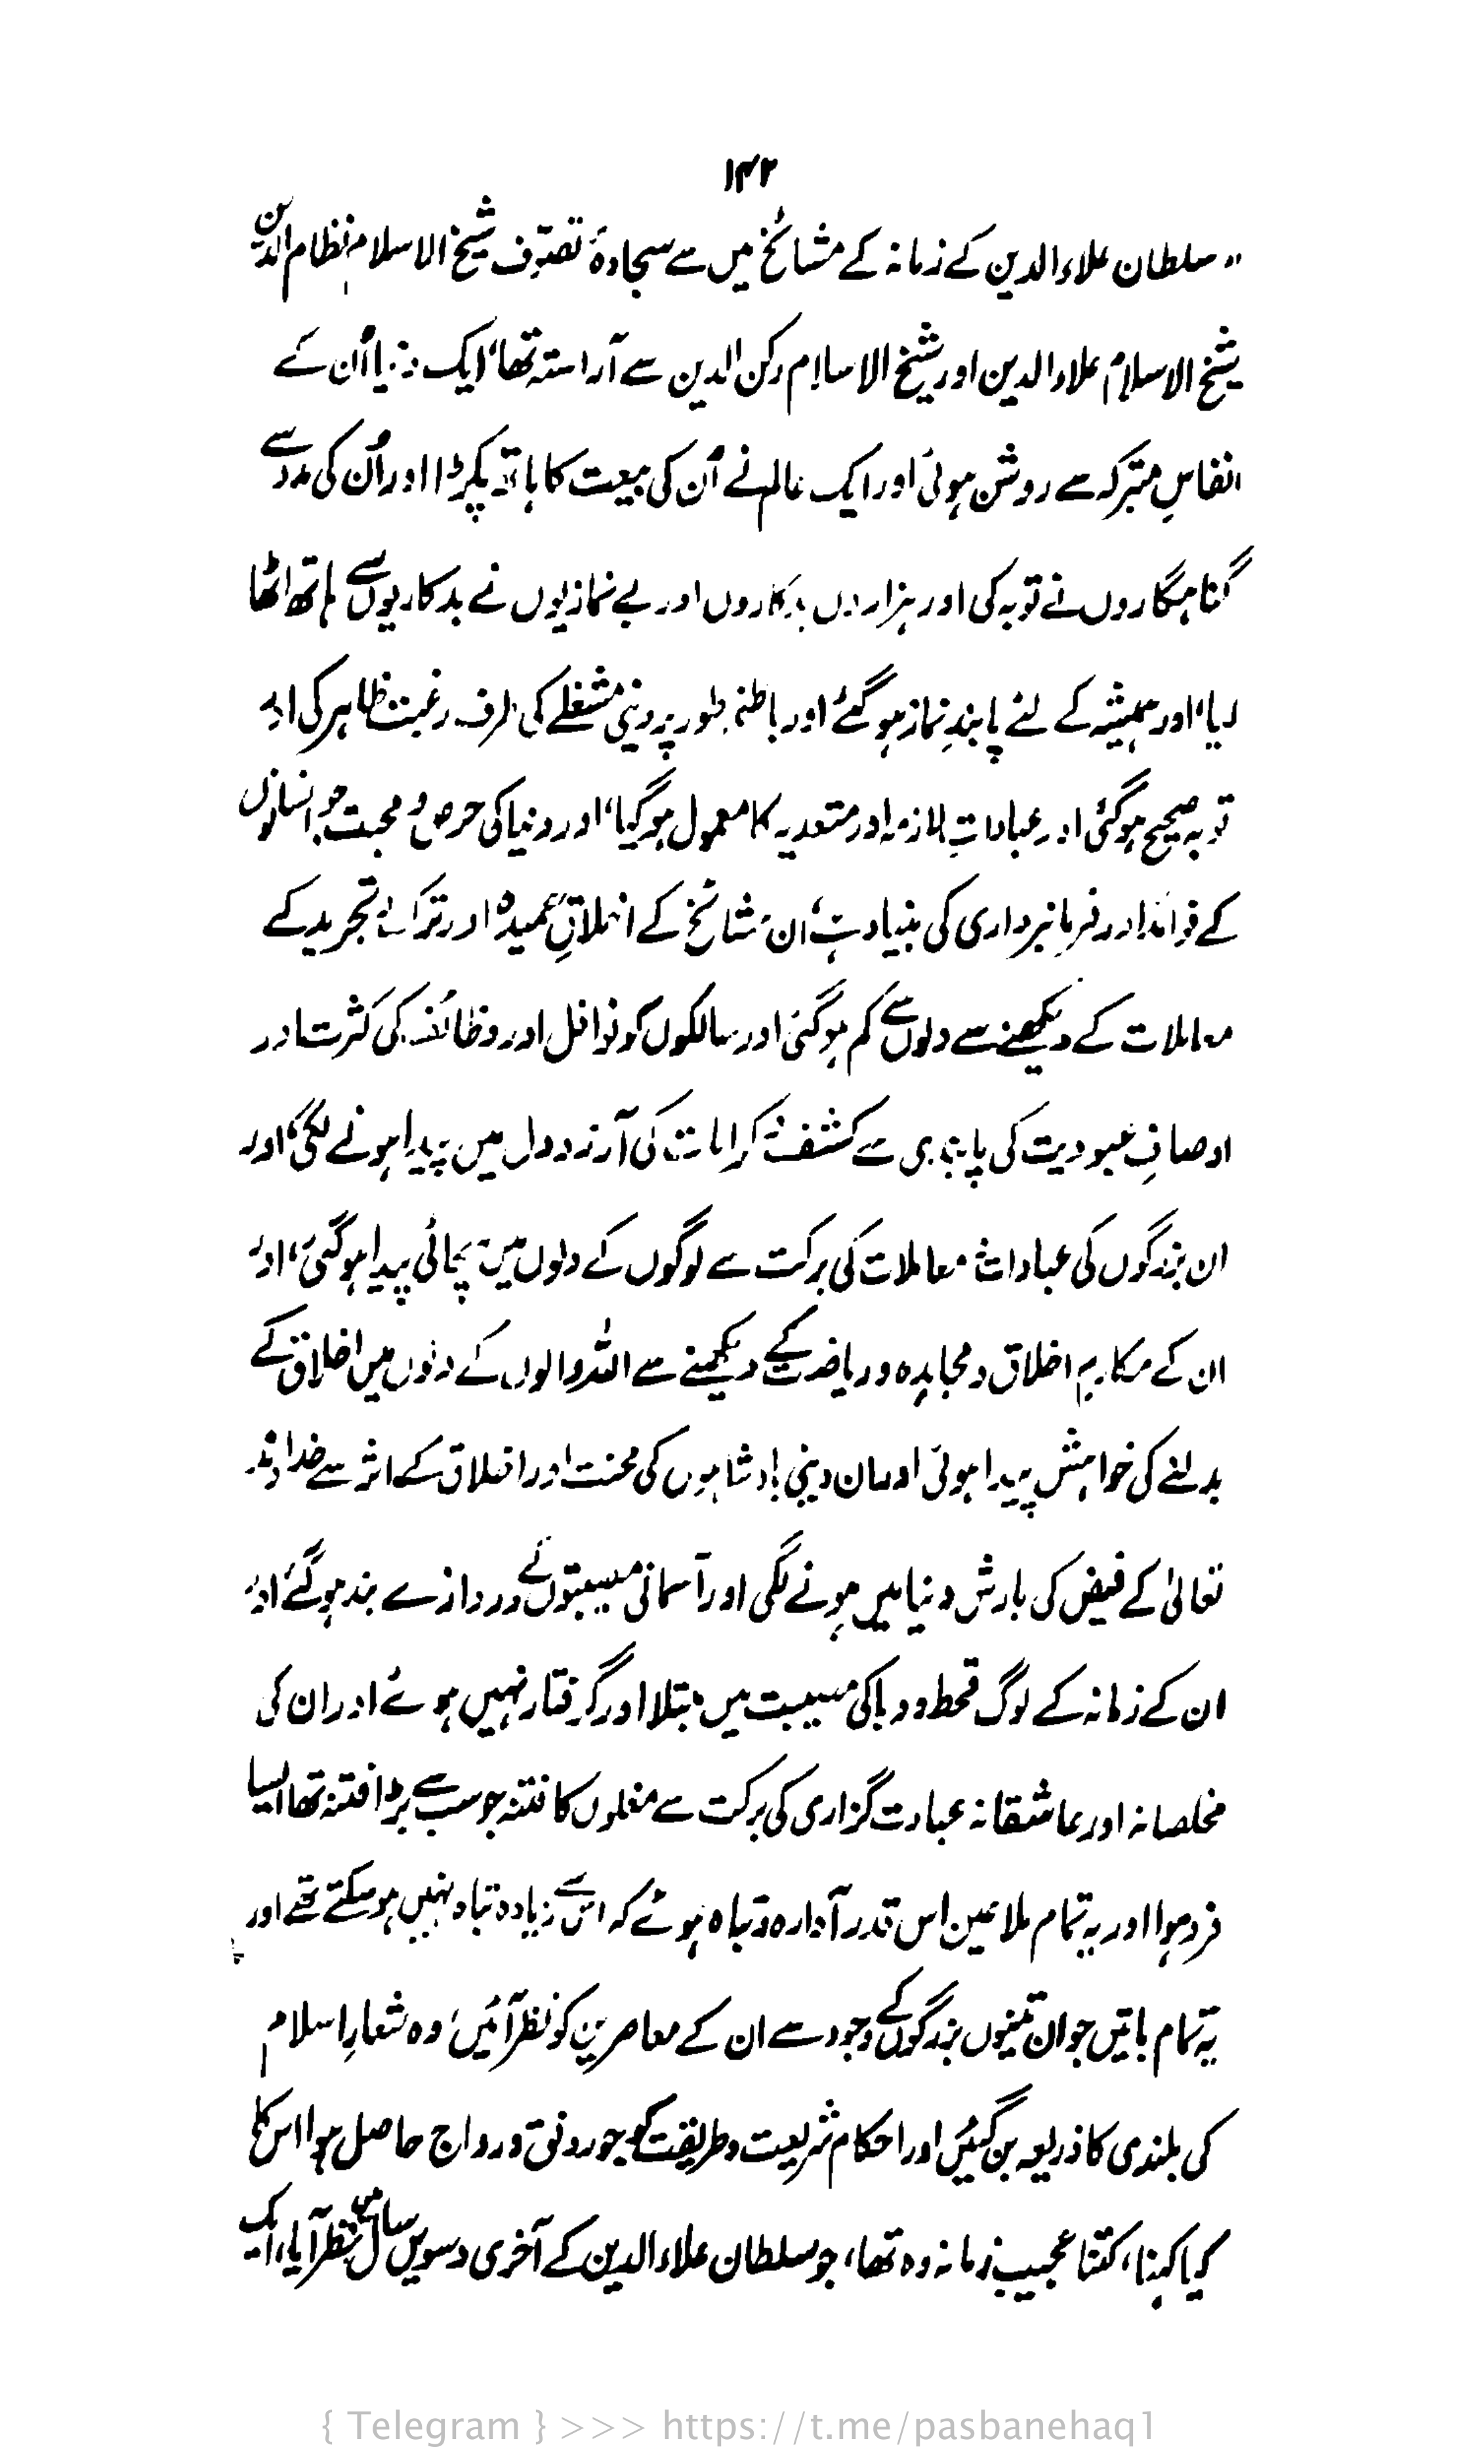 ۱۴۲
"سلطان علاء الدین کے زمانہ کے مشائخ میں سے سجادۂ تصوّف شیخ الاسلام نظام الدین
شیخ الاسلام علاء الدین اور شیخ الاسلام رکن الدین سے آراستہ تھا، ایک دنیا اُن کے
انفاسِ متبرکہ سے روشن ہوئی اور ایک عالم نے اُن کی بیعت کا ہاتھ پکڑا اور اُن کی مدد سے
گناہگاروں نے توبہ کی اور ہزاروں بدکاروں اور بے نمازیوں نے بدکاریوں سے ہاتھ اٹھا
لیا، اور ہمیشہ کے لئے پابندِ نماز ہو گئے اور باطنی طور پر دینی مشغلے کی طرف رغبت ظاہر کی اور
توبہ صحیح ہوگئی اور عباداتِ لازمہ اور متعدیہ کا معمول ہو گیا، اور دنیا کی حرص و محبت جو انسانوں
کے فوائد اور فرمانبرداری کی بنیاد ہے، ان مشائخ کے اخلاقِ حمیدہ اور ترک و تجرید کے
معاملات کے دیکھنے سے دلوں سے کم ہوگئی اور سالکوں کو نوافل اور وظائف کی کثرت اور
اوصافِ عبودیت کی پابندی سے کشف و کرامات کی آرزو دل میں پیدا ہونے لگی، اور
ان بزرگوں کی عبادات و معاملات کی برکت سے لوگوں کے دلوں میں سچائی پیدا ہوگئی، اور
ان کے مکارمِ اخلاق و مجاہدہ و ریاضت کے دیکھنے سے اللہ والوں کے دلوں میں اخلاق کے
بدلنے کی خواہش پیدا ہوئی اور ان دینی بادشاہوں کی محنت اور اخلاق کے اثر سے خداوند
تعالیٰ کے فیض کی بارش دنیا میں ہونے لگی اور آسمانی مصیبتوں کے دروازے بند ہو گئے اور
ان کے زمانہ کے لوگ قحط و وبا کی مصیبت میں مبتلا اور گرفتار نہیں ہوئے اور ان کی
مخلصانہ اور عاشقانہ عبادت گزاری کی برکت سے مغلوں کا فتنہ جو سب سے بڑا فتنہ تھا ایسا
فرو ہوا اور یہ تمام ملاعین اس قدر آوارہ و تباہ ہوئے کہ اس سے زیادہ تباہ نہیں ہو سکتے تھے اور
یہ تمام باتیں جو ان تینوں بزرگوں کے وجود سے ان کے معاصرین کو نظر آئیں، وہ شعارِ اسلام
کی بلندی کا ذریعہ بن گئیں اور احکام شریعت و طریقت کو جو رونق و رواج حاصل ہوا اس کا
کیا کہنا، کتنا عجیب زمانہ وہ تھا، جو سلطان علاء الدین کے آخری دسویں سال میں نظر آیا، ایک
{ Telegram } >>> https://t.me/pasbanehaq1